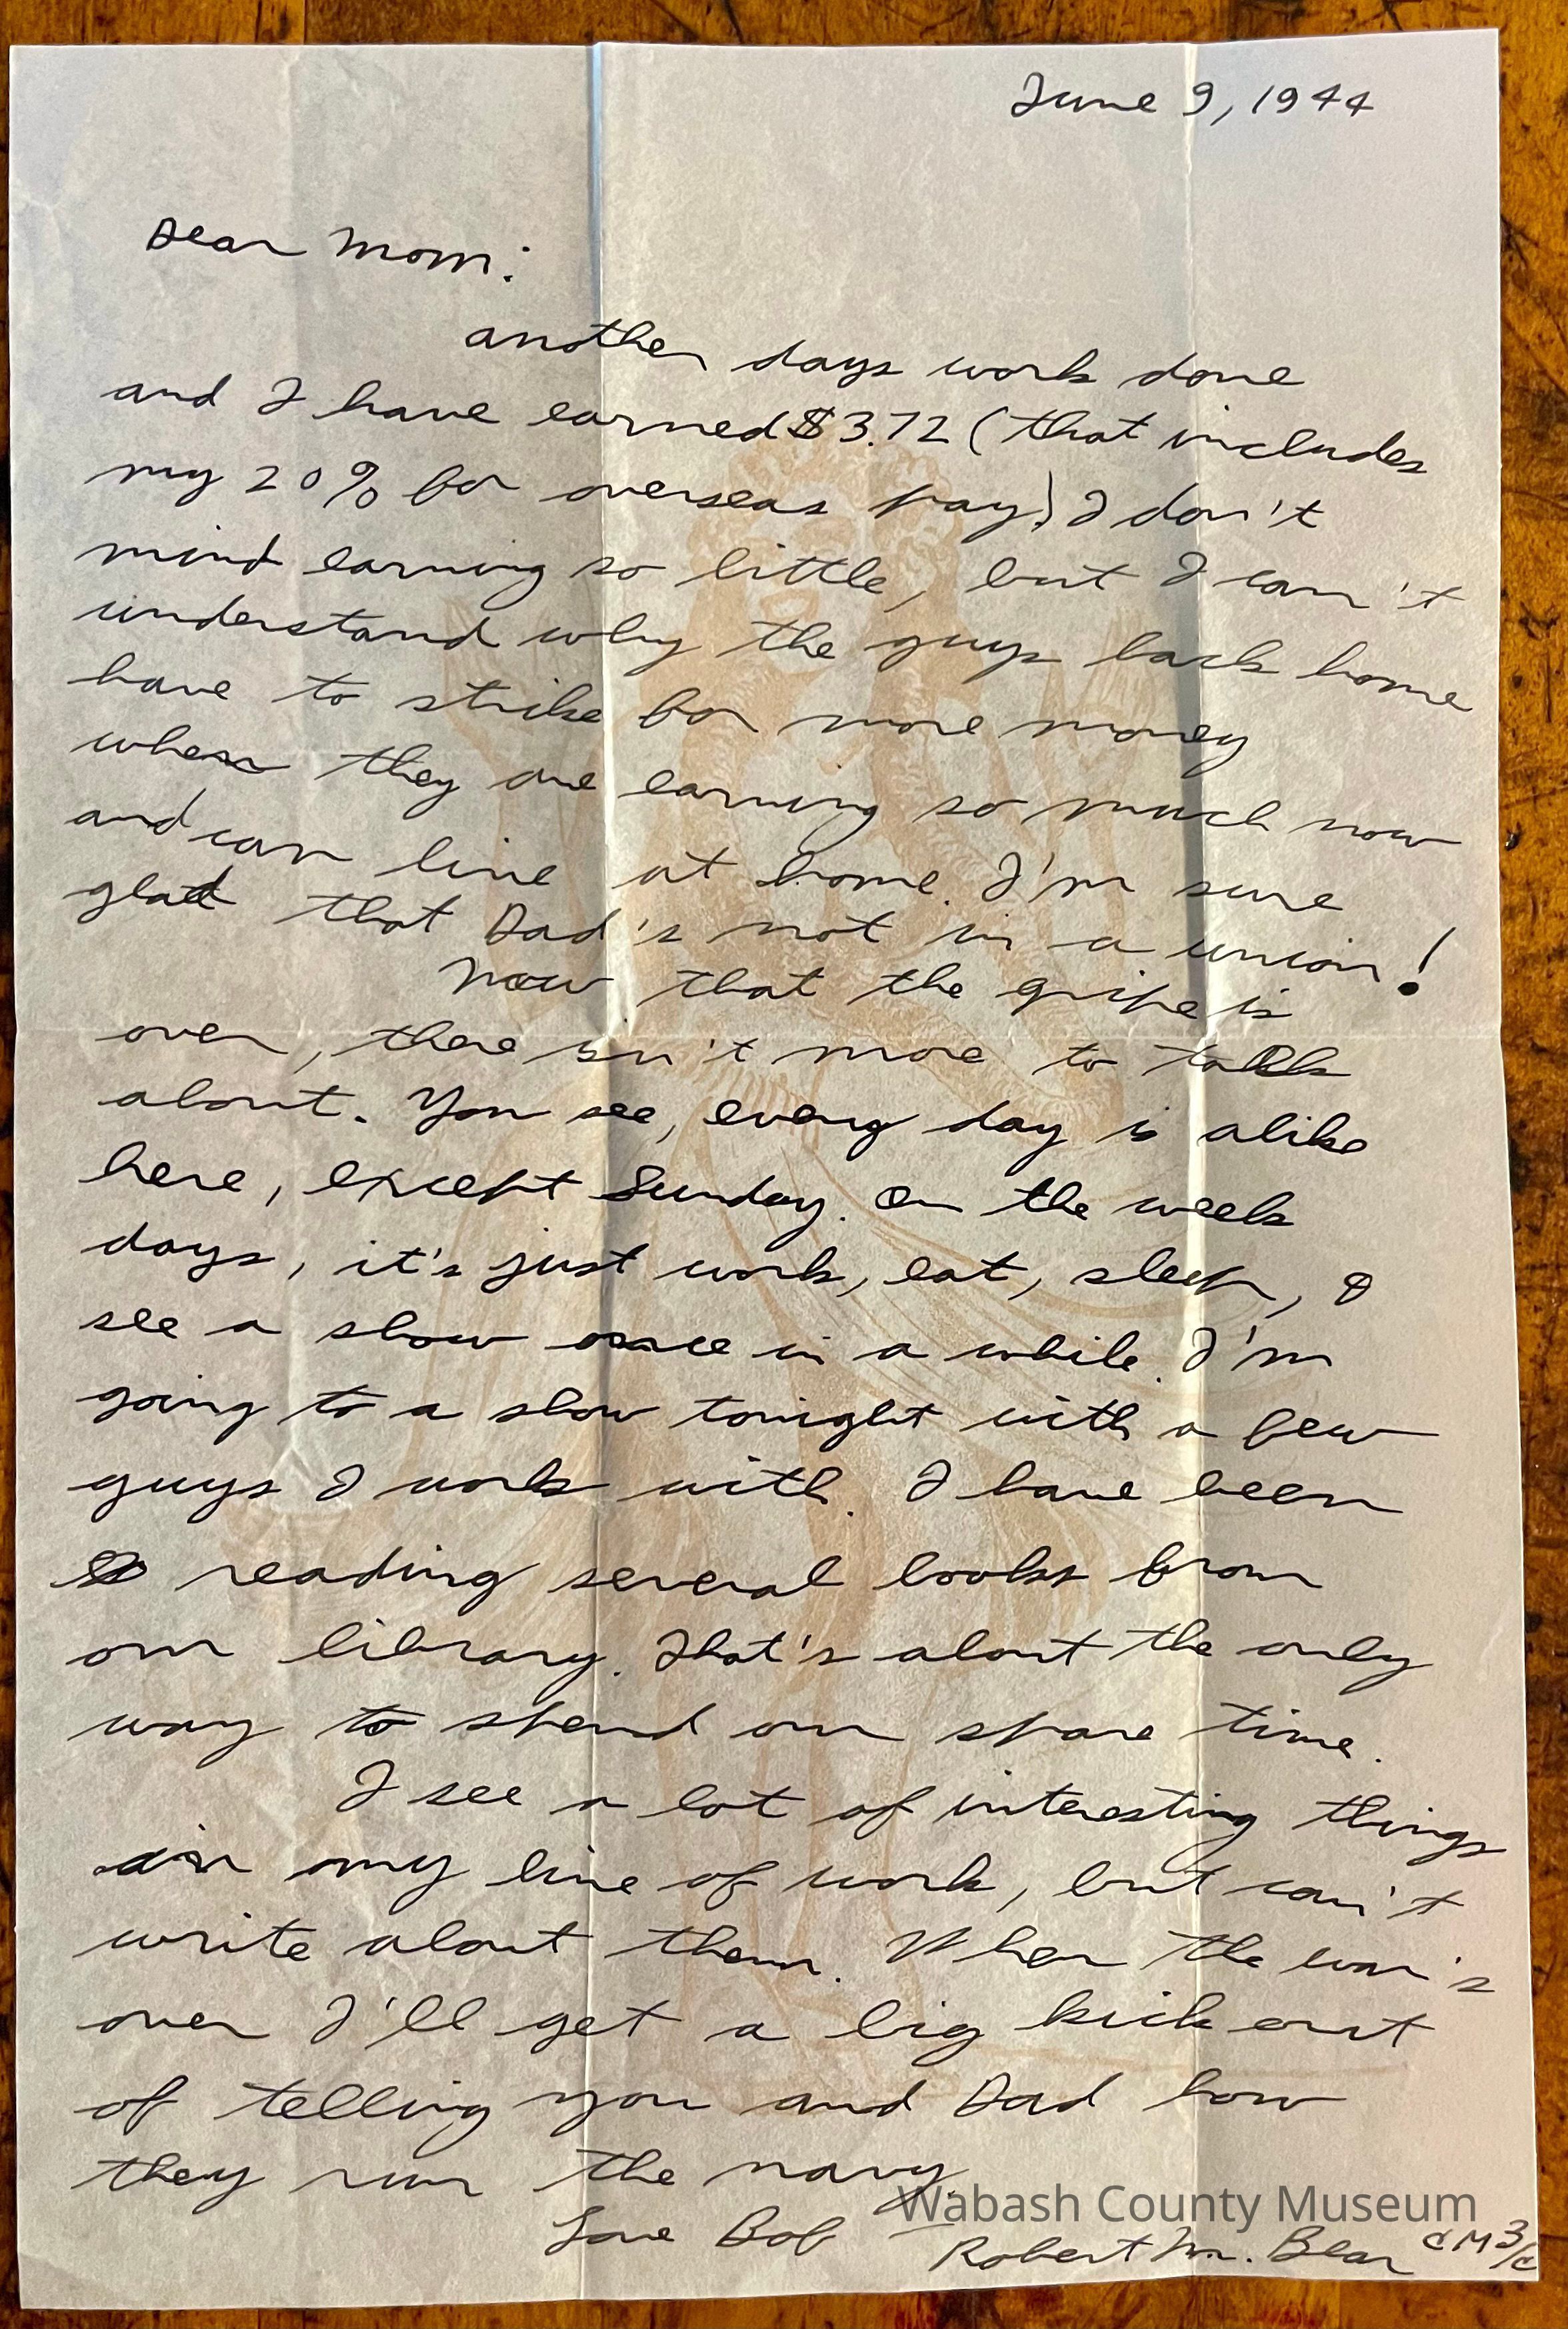 June 9, 1944
Dear Mom:
another days work done
and I have earned $3.72 (that includes
my 20% for overseas pay) I don't
mind earning so little, but I can't
understand why the guys back home
have to strike for more money
when they are earning so much now
and can live at home. I'm sure
glad that Dad's not in a union!
Now that the gripe is
over, there isn't more to talk
about. You see, every day is alike
here, except Sunday. On the week
days, it's just work, eat, sleep, &
see a show once in a while. I'm
going to a show tonight with a few
guys I work with. I have been
reading several books from
our library. That's about the only
way to spend our spare time.
I see a lot of interesting things
in my line of work, but can't
write about them. When the war's
over I'll get a big kick out
of telling you and Dad how
they run the navy.
Love Bob – Robert M. Bear CM3/c
Wabash County Museum